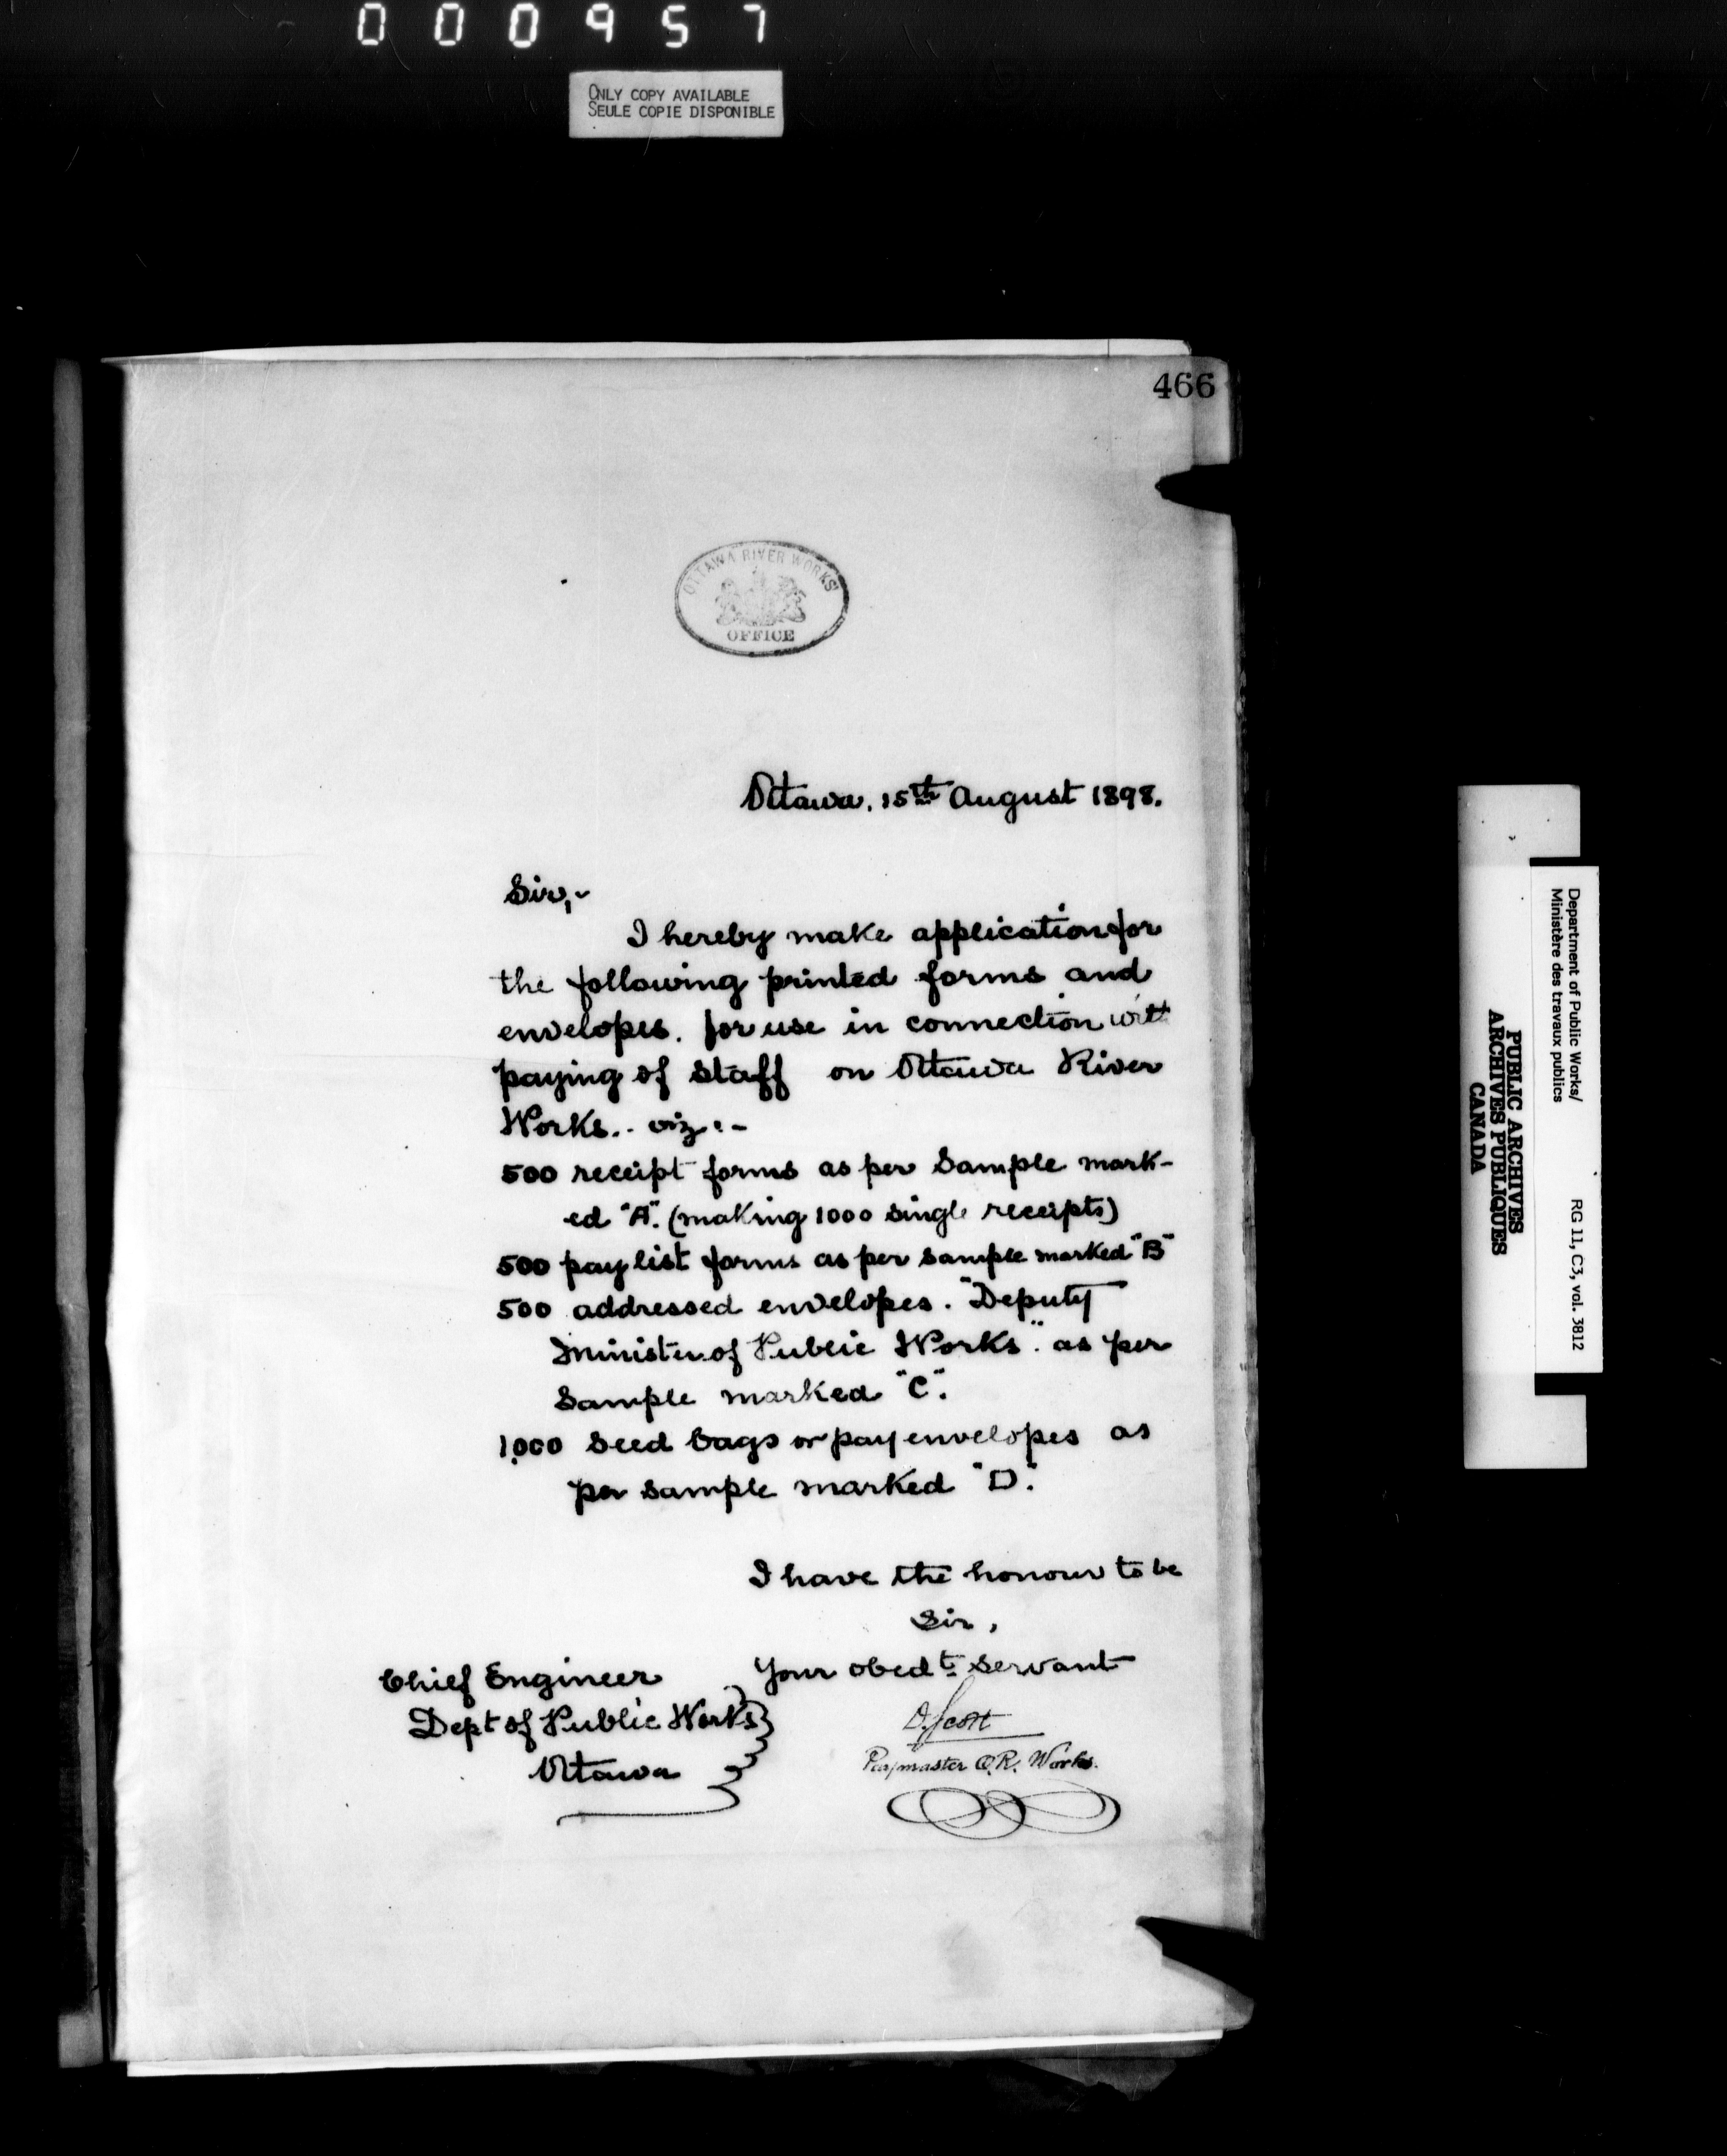 000957
ONLY COPY AVAILABLE
SEULE COPIE DISPONIBLE
466
OTTAWA RIVER WORKS
OFFICE
Ottawa, 15th August 1898.
Sir,-
I hereby make application for
the following printed forms and
envelopes. for use in connection with
paying of staff on Ottawa River
Works.. viz:-
500 receipt forms as per Sample mark-
ed "A". (making 1000 single receipts)
500 pay list forms as per sample marked "B"
500 addressed envelopes. "Deputy
Minister of Public Works". as per
Sample marked "C".
1,000 seed bags or pay envelopes as
per sample marked "D".
I have the honour to be
Sir,
Your obedt servant
D. Scott
Paymaster O.R. Works.
Chief Engineer
Dept of Public Works
Ottawa
Department of Public Works/
Ministère des travaux publics
RG 11, C3, vol. 3812
PUBLIC ARCHIVES
ARCHIVES PUBLIQUES
CANADA